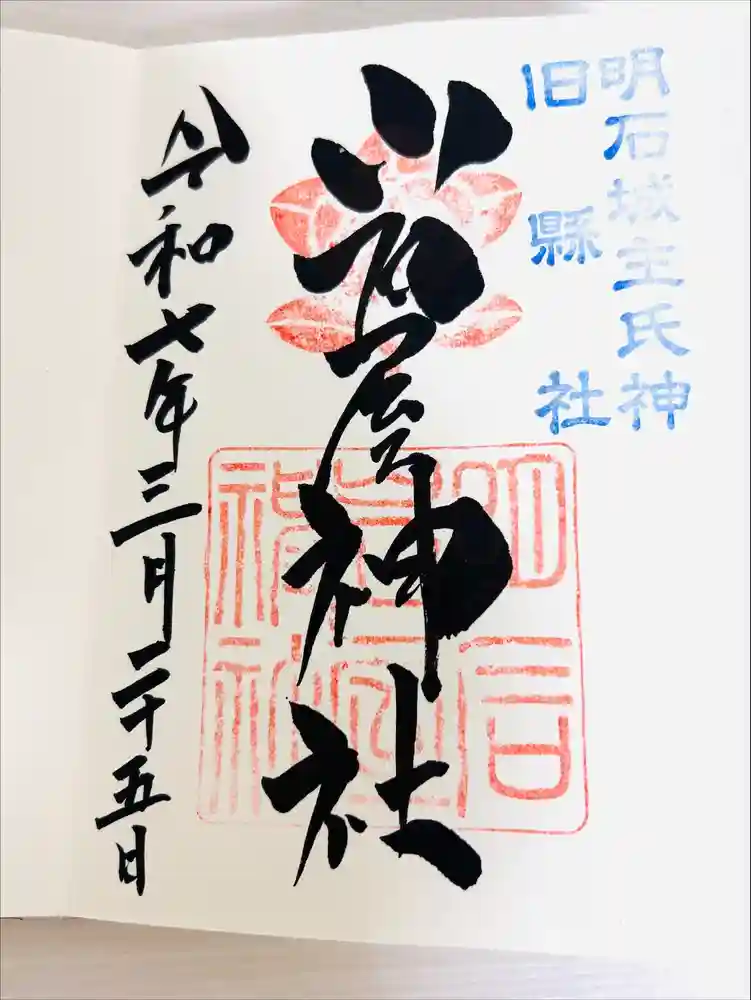 明石城主氏神
旧縣社
岩屋神社
明石岩屋神社
令和七年三月二十五日